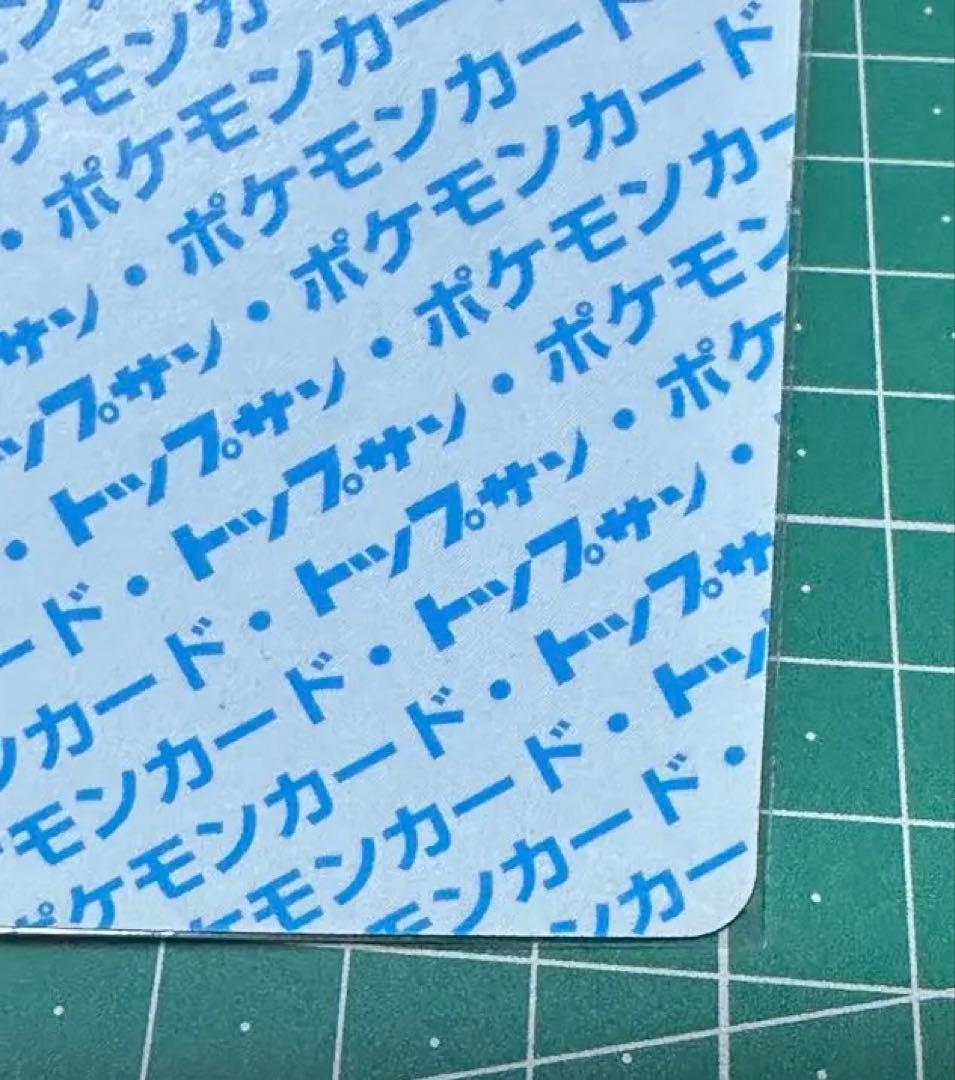 ケモンカ
・ポケモンカー
サン・ポケモンカード
ップサン・ポケモンカード
・トップサン・ポケモンカー
ード・トップサン・ポケモン
ンカード・トップサン・ポケ
モンカード・トップサン・
ポケモンカード・トップサ
ケモンカード・トッ
モンカード・
ンカー